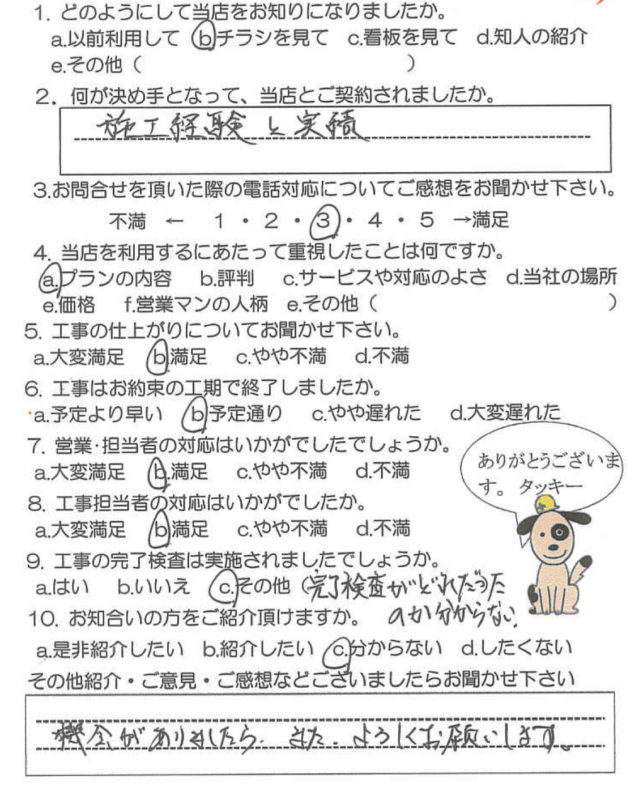 1. どのようにして当店をお知りになりましたか。
a.以前利用して b.チラシを見て c.看板を見て d.知人の紹介
e.その他（ ）
2. 何が決め手となって、当店とご契約されましたか。
施工経験と実績
3.お問合せを頂いた際の電話対応についてご感想をお聞かせ下さい。
不満 ← 1・2・3・4・5 →満足
4. 当店を利用するにあたって重視したことは何ですか。
a.プランの内容 b.評判 c.サービスや対応のよさ d.当社の場所
e.価格 f.営業マンの人柄 e.その他（ ）
5. 工事の仕上がりについてお聞かせ下さい。
a.大変満足 b.満足 c.やや不満 d.不満
6. 工事はお約束の工期で終了しましたか。
a.予定より早い b.予定通り c.やや遅れた d.大変遅れた
7. 営業・担当者の対応はいかがでしたでしょうか。
a.大変満足 b.満足 c.やや不満 d.不満
ありがとうございま
す。 タッキー
8. 工事担当者の対応はいかがでしたか。
a.大変満足 b.満足 c.やや不満 d.不満
9. 工事の完了検査は実施されましたでしょうか。
a.はい b.いいえ c.その他（完了検査がどれだった
のか分からない
10. お知合いの方をご紹介頂けますか。
a.是非紹介したい b.紹介したい c.分からない d.したくない
その他紹介・ご意見・ご感想などございましたらお聞かせ下さい
機会がありましたら、また、よろしくお願いします。